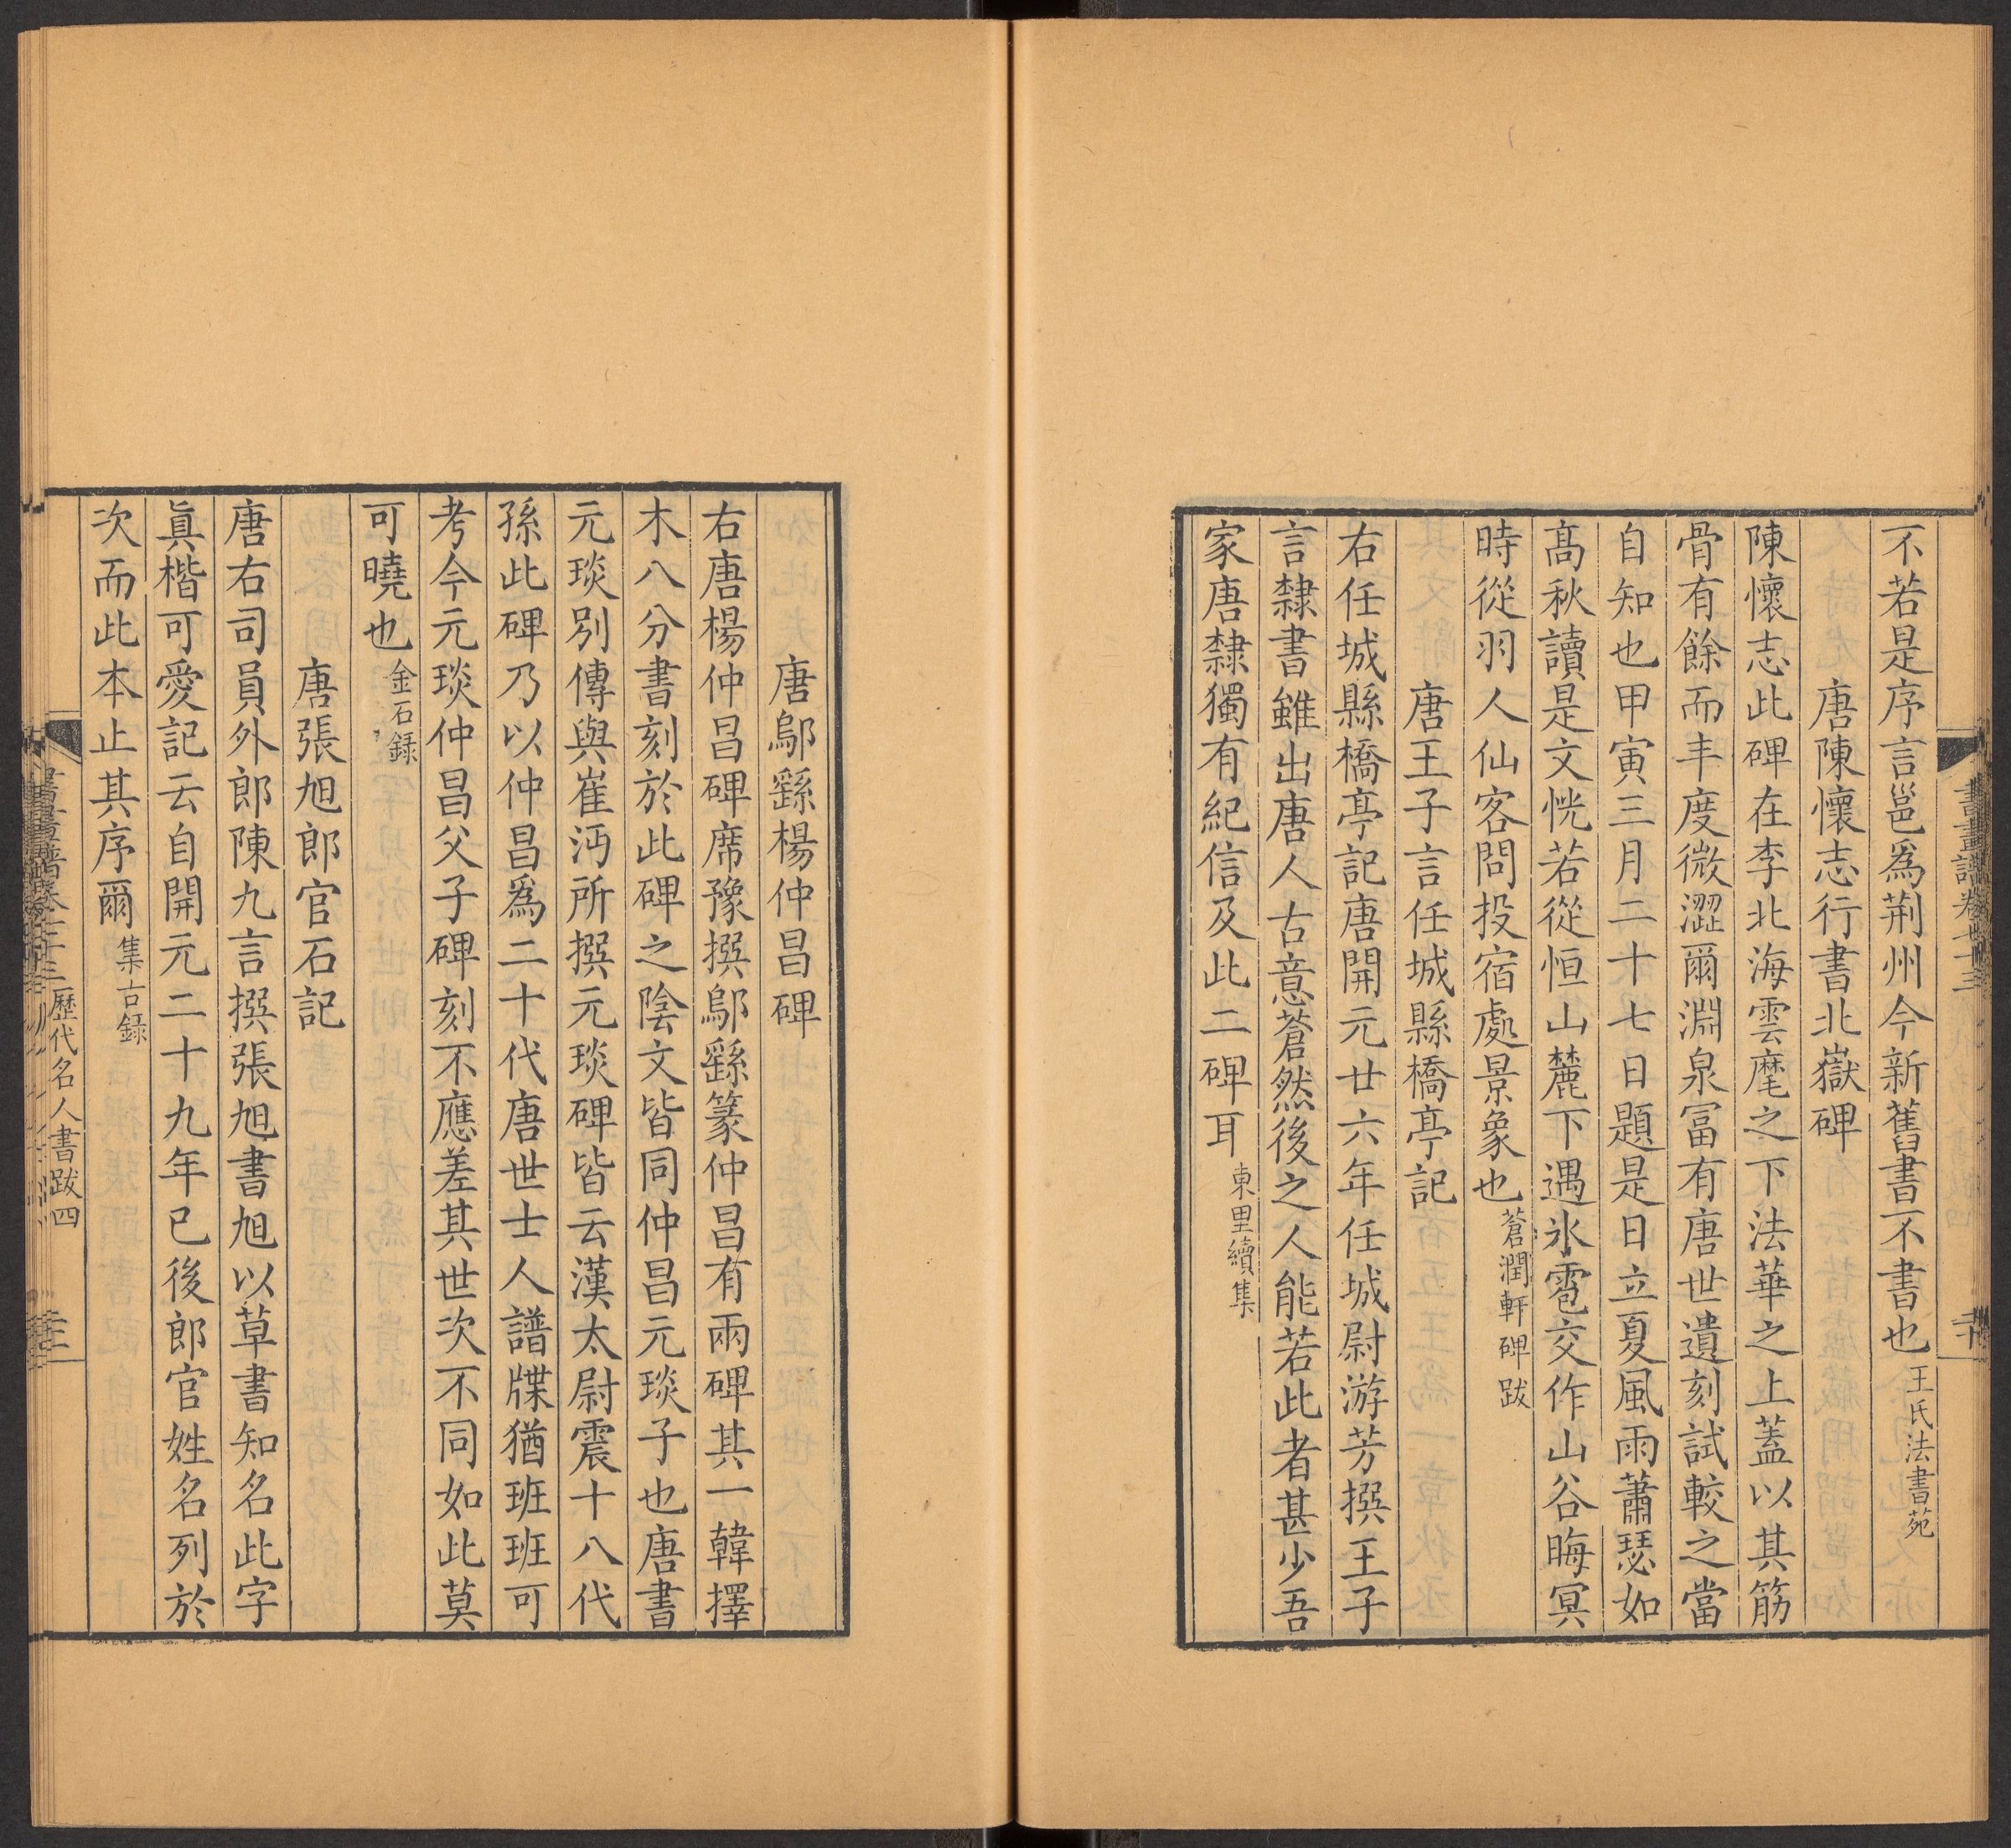 不若是序言邕爲荆州今新舊書不書也王氏法書苑
唐陳懷志行書北嶽碑
陳懷志此碑在李北海雲麾之下法華之上蓋以其筋
骨有餘而丰度微澀爾淵泉冨有唐世遺刻試較之當
自知也甲寅三月二十七日題是日立夏風雨蕭瑟如
髙秋讀是文恍若從恒山麓下遇氷雹交作山谷晦冥
時從羽人仙客問投宿處景象也蒼潤軒碑跋
唐王子言任城縣橋亭記
右任城縣橋亭記唐開元廿六年任城尉游芳撰王子
言隸書雖出唐人古意蒼然後之人能若此者甚少吾
家唐隸獨有紀信及此二碑耳東里續集
唐鄔繇楊仲昌碑
右唐楊仲昌碑席豫撰鄔繇篆仲昌有兩碑其一韓擇
木八分書刻於此碑之陰文皆同仲昌元琰子也唐書
元琰別傳與崔沔所撰元琰碑皆云漢太尉震十八代
孫此碑乃以仲昌爲二十代唐世士人譜牒猶班班可
考今元琰仲昌父子碑刻不應差其世次不同如此莫
可曉也金石録
唐張旭郎官石記
唐右司員外郎陳九言撰張旭書旭以草書知名此字
眞楷可愛記云自開元二十九年已後郎官姓名列於
次而此本止其序爾集古録
歷代名人書跋四